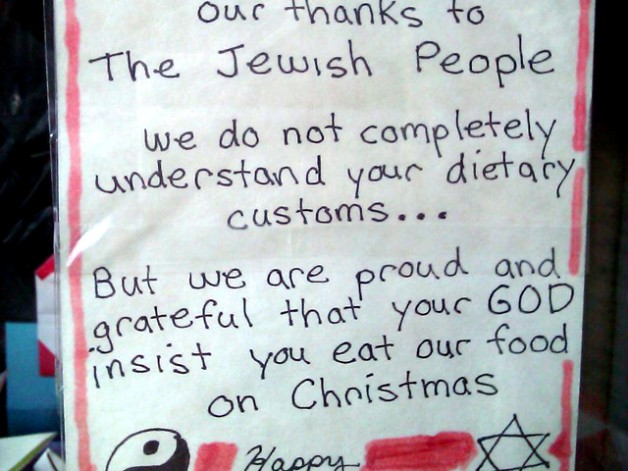 our thanks to
The Jewish People
we do not completely
understand your dietary
customs...
But we are proud and
grateful that your GOD
insist you eat our food
on Christmas
Happy